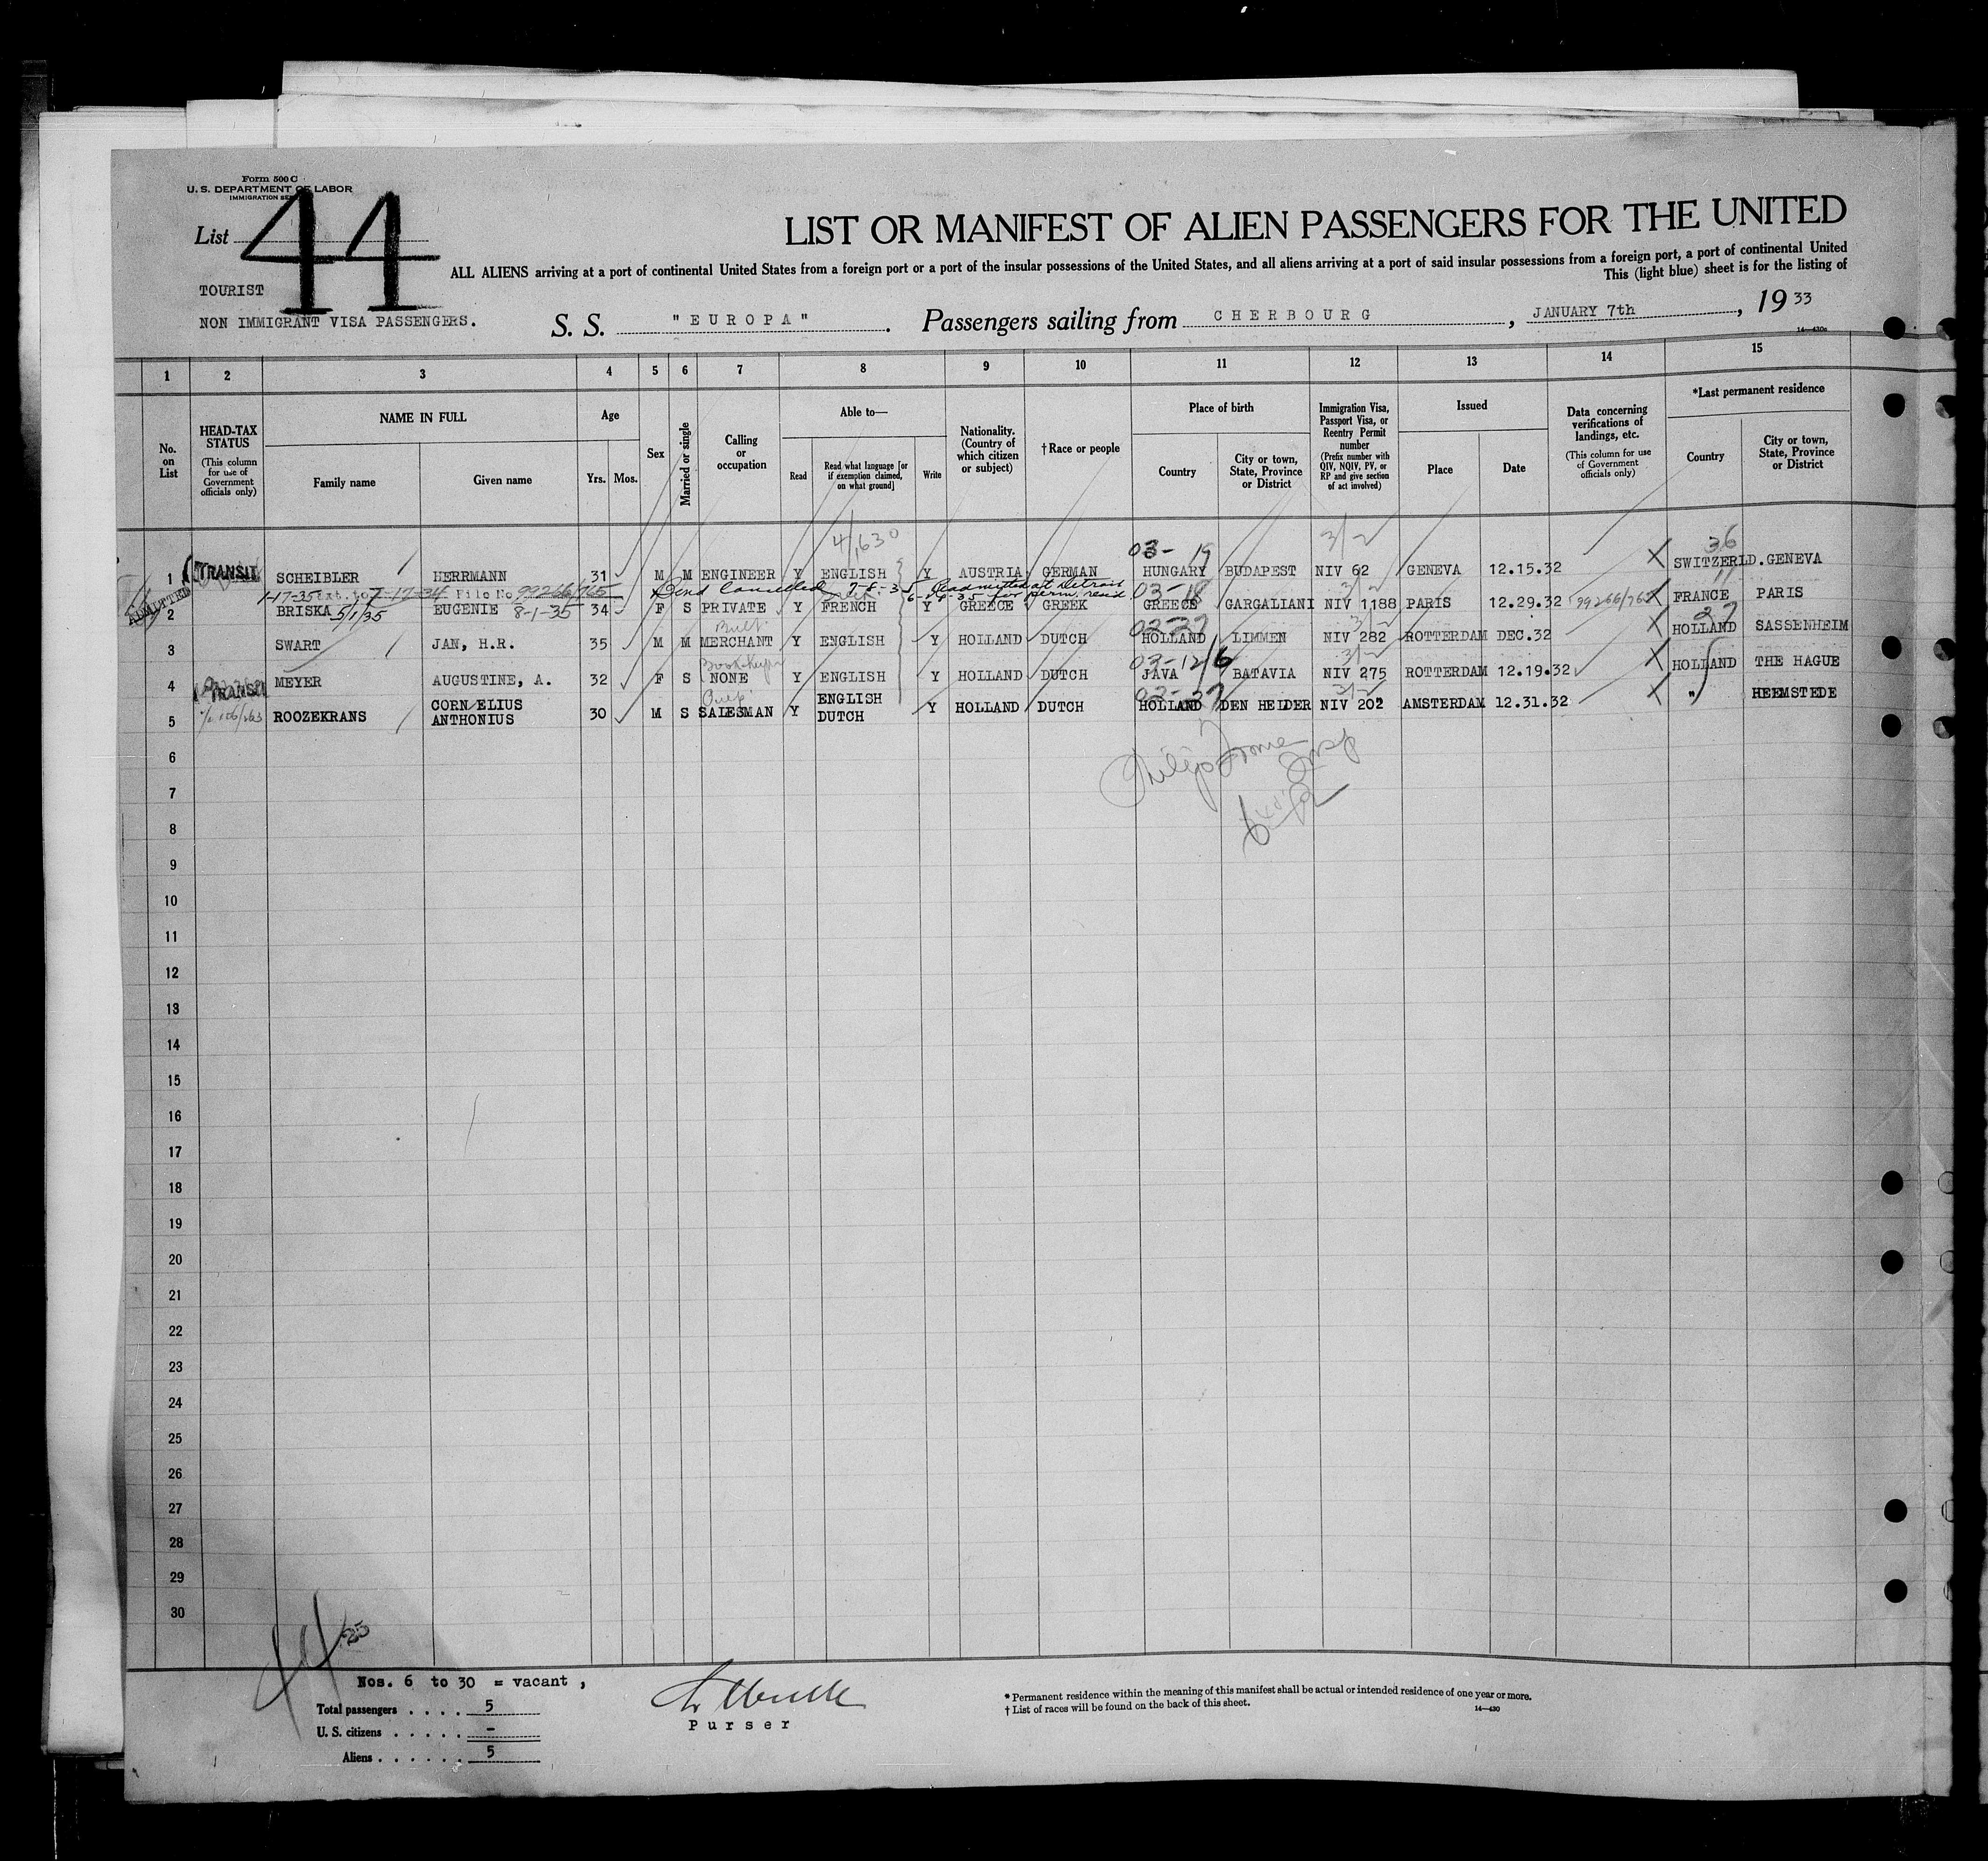 Form 500 C
U. S. DEPARTMENT OF LABOR
IMMIGRATION
List 44
LIST OR MANIFEST OF ALIEN PASSENGERS FOR THE UNITED
ALL ALIENS arriving at a port of continental United States from a foreign port or a port of the insular possessions of the United States, and all aliens arriving at a port of said insular possessions from a foreign port, a port of continental United
This (light blue) sheet is for the listing of
TOURIST
NON IMMIGRANT VISA PASSENGERS.
S. S. "EUROPA". Passengers sailing from CHERBOURG, JANUARY 7th, 19 33
14—430c
1 2 3 4 5 6 7 8 9 10 11 12 13 14 15
No. on List
HEAD-TAX STATUS (This column for use of Government officials only)
NAME IN FULL
Family name
Given name
Age
Yrs. Mos.
Sex
Married or single
Calling or occupation
Able to—
Read
Read what language [or if exemption claimed, on what ground]
Write
Nationality. (Country of which citizen or subject)
†Race or people
Place of birth
Country
City or town, State, Province or District
Immigration Visa, Passport Visa, or Reentry Permit number (Prefix number with QIV, NQIV, PV, or RP and give section of act involved)
Issued
Place
Date
Data concerning verifications of landings, etc. (This column for use of Government officials only)
*Last permanent residence
Country
City or town, State, Province or District
4/630 03- 19 3/2 36
1 TRANSIT SCHEIBLER HERRMANN 31 M M ENGINEER Y ENGLISH Y AUSTRIA GERMAN HUNGARY BUDAPEST NIV 62 GENEVA 12.15.32 X SWITZERLD. GENEVA
ADMITTED 1-17-35 ext. to 7-17-34 File No. 99266/765 Bond Cancelled 7-8-35 Readmitted at Detroit 6-29-35 for perm. resid. 03-18 11
2 BRISKA 5/1/35 EUGENIE 8-1-35 34 F S PRIVATE Y FRENCH Y GREECE GREEK GREECE GARGALIANI NIV 1188 PARIS 12.29.32 99266/765 X FRANCE PARIS
Bulb 03-27 27
3 SWART JAN, H.R. 35 M M MERCHANT Y ENGLISH Y HOLLAND DUTCH HOLLAND LIMMEN NIV 282 ROTTERDAM DEC.32 X HOLLAND SASSENHEIM
Bookkeeper 03-12/6 3/2
4 MEYER AUGUSTINE, A. 32 F S NONE Y ENGLISH Y HOLLAND DUTCH JAVA BATAVIA NIV 275 ROTTERDAM 12.19.32 X HOLLAND THE HAGUE
TRANSIT 03-27 3/2
5 ROOZEKRANS CORNELIUS ANTHONIUS 30 M S SALESMAN Y ENGLISH DUTCH Y HOLLAND DUTCH HOLLAND DEN HELDER NIV 202 AMSTERDAM 12.31.32 X " HEEMSTEDE
6
7
8
9
10
11
12
13
14
15
16
17
18
19
20
21
22
23
24
25
26
27
28
29
30
Nos. 6 to 30 = vacant,
Total passengers . . . . 5
U. S. citizens . . . . . –
Aliens . . . . . . 5
Purser
* Permanent residence within the meaning of this manifest shall be actual or intended residence of one year or more.
† List of races will be found on the back of this sheet.
14—430